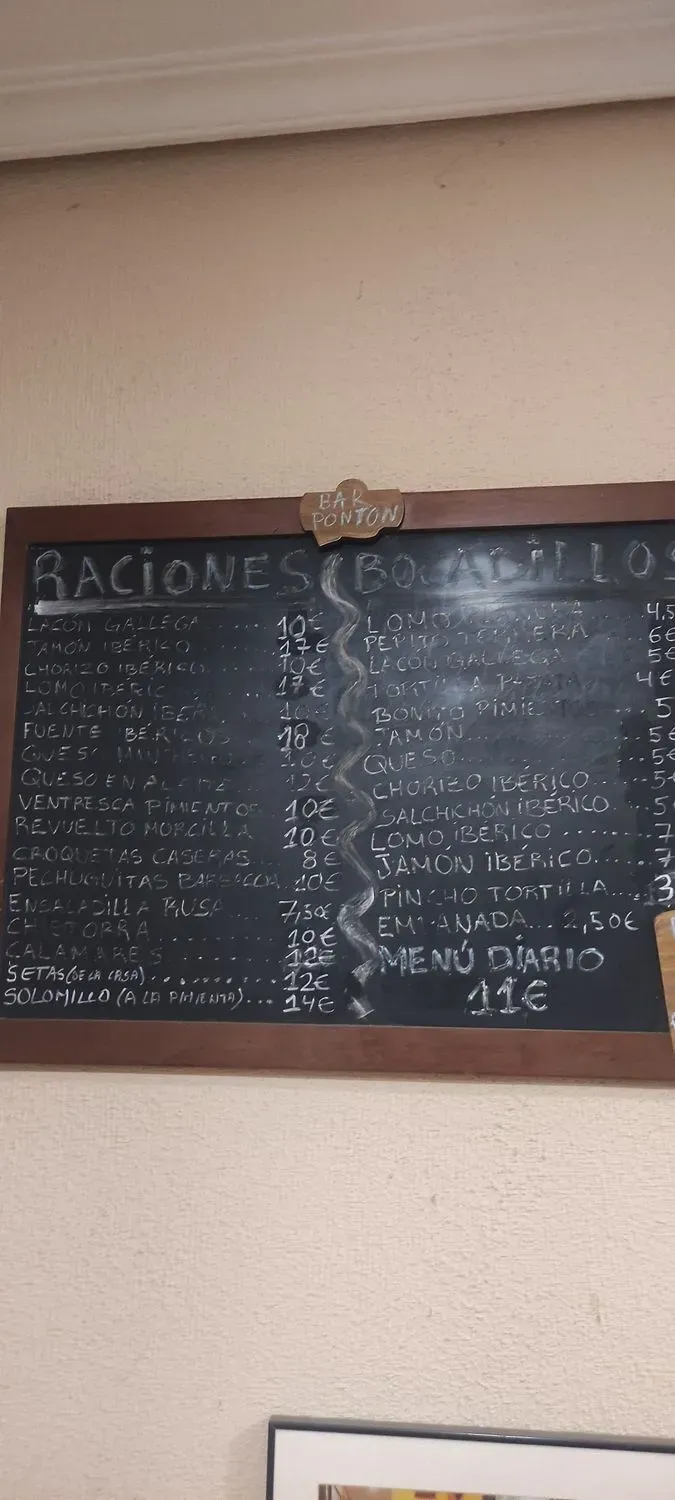 BAR
PONTON
RACIONES
LACÓN GALLEGA ..... 10€
JAMÓN IBÉRICO 17€
CHORIZO IBÉRICO.. 10€
LOMO IBERIC ... 17€
SALCHICHÓN IBER
FUENTE IBÉRICOS 18€
QUESO EN
VENTRESCA PIMIENTOS 10€
REVUELTO MORCILLA 10€
CROQUETAS CASERAS.. 8€
PECHUGUITAS BARBACOA..10€
ENSALADILLA RUSA... 7,50€
CHISTORRA ........ 10€
CALAMARES ....... 12€
SETAS (DE LA CASA)......... 12€
SOLOMILLO (A LA PIMIENTA)... 14€
BOCADILLOS
LOMO ... 4,5
PEPITO TERNERA ... 6€
LACÓN GALLEGA ... 5€
TORTILLA PATATA 4€
BONITO PIMIENTOS 5
JAMÓN ... 5€
QUESO ... 5€
CHORIZO IBÉRICO.... 5€
SALCHICHÓN IBÉRICO... 5
LOMO IBÉRICO ...... 7
JAMÓN IBÉRICO.... 7
PINCHO TORTILLA... 3
EMPANADA... 2,50€
MENÚ DÍARIO
11€